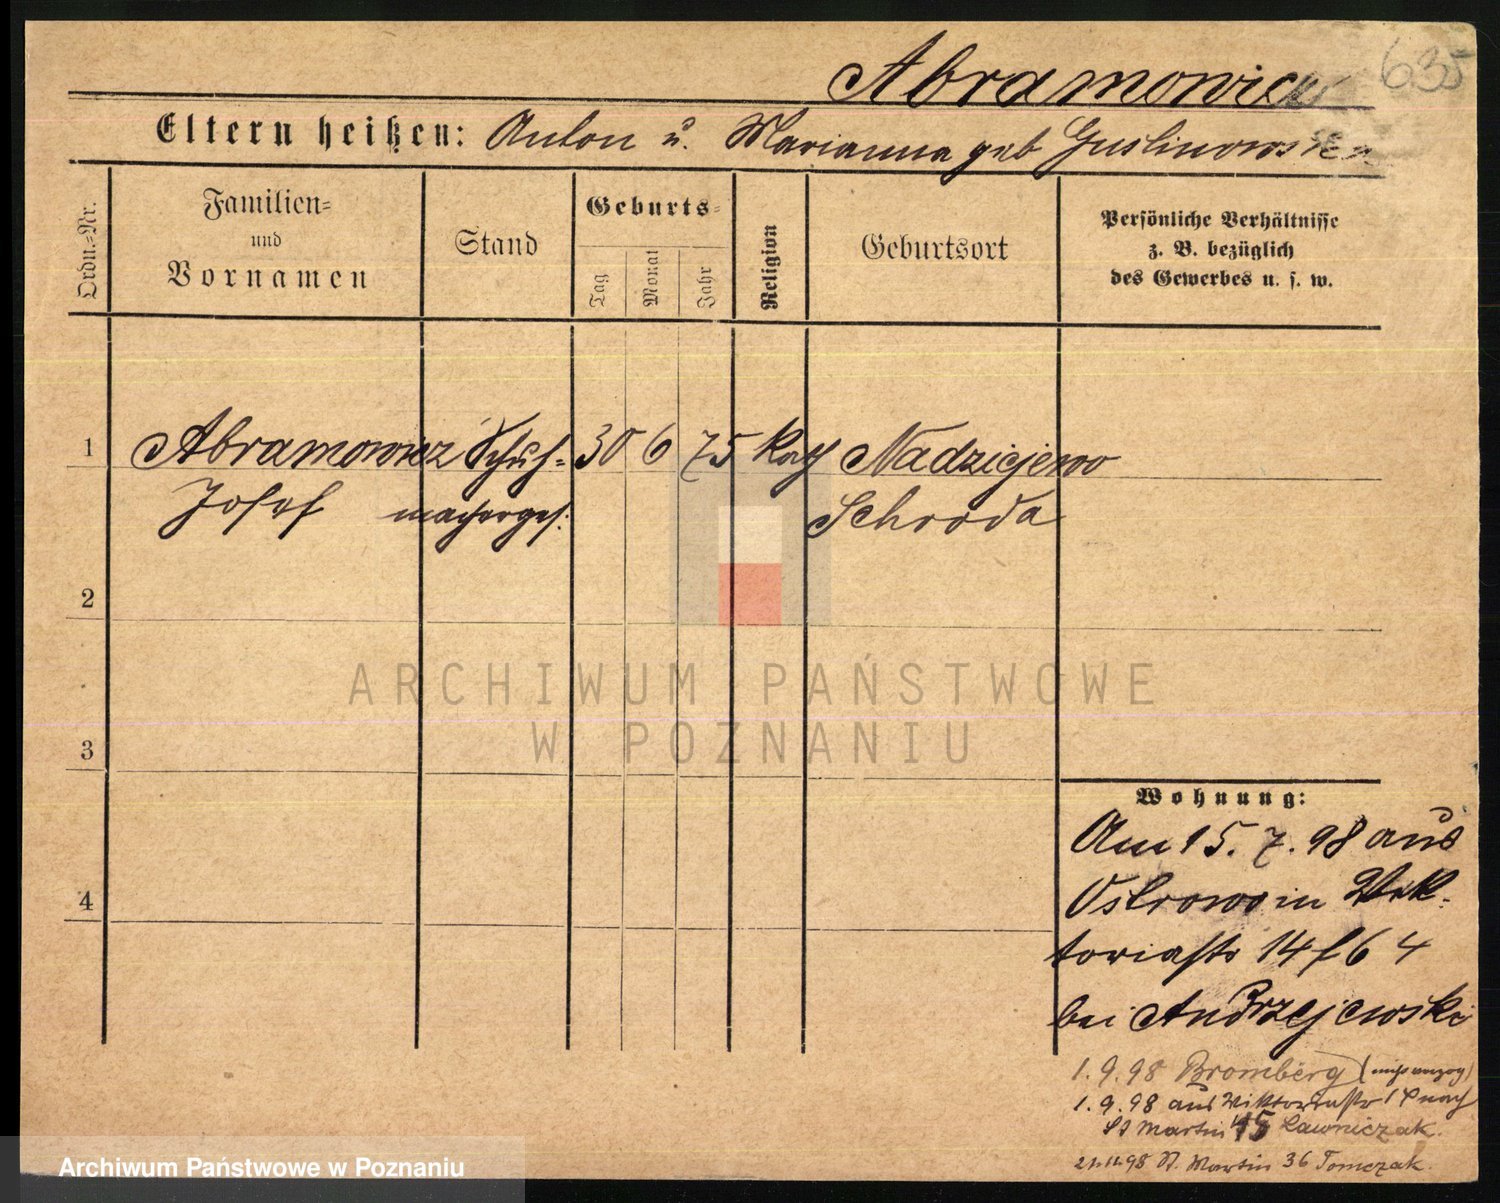 635
Abramowicz
Eltern heißen: Anton u. Marianna geb Guslinowska
Ordn.=Nr.
Familien=
und
Vornamen
Stand
Geburts=
Tag
Monat
Jahr
Religion
Geburtsort
Persönliche Verhältnisse
z. B. bezüglich
des Gewerbes u. s. w.
1 Abramowicz Schuh= 30 6 75 kath Nadziejewo
Josef machergef. Schroda
2
3
4
Wohnung:
Am 15. 7. 98 aus
Ostrowo in Vik=
toriastr 14 64
bei Andrzejewski
1.9.98 Bromberg
1.9.98 aus Viktoriastr nach
St Martin 45 Lawniczak.
98 St. Martin 36 Tomczak.
ARCHIWUM PAŃSTWOWE
W POZNANIU
Archiwum Państwowe w Poznaniu